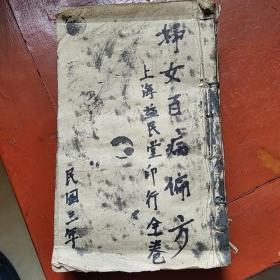 婦女百病偏方
上海益民堂印行全卷
民国三年